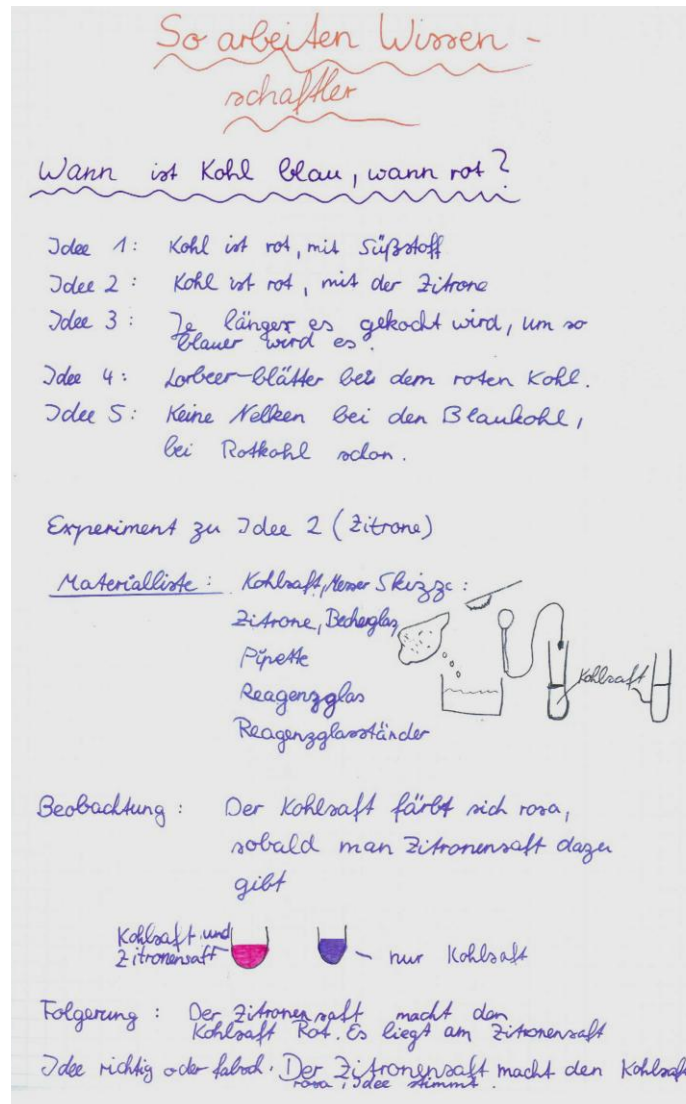 So arbeiten Wissen-
schaftler
Wann ist Kohl blau, wann rot?
Idee 1: Kohl ist rot, mit Süßstoff
Idee 2: Kohl ist rot, mit der Zitrone
Idee 3: Je länger es gekocht wird, um so
blauer wird es.
Idee 4: Lorbeer-blätter bei dem roten Kohl.
Idee 5: Keine Nelken bei den Blaukohl,
bei Rotkohl schon.
Experiment zu Idee 2 (Zitrone)
Materialliste: Kohlsaft, Messer Skizze:
Zitrone, Becherglas,
Pipette
Reagenzglas
Reagenzglasständer
Kohlsaft
Beobachtung: Der Kohlsaft färbt sich rosa,
sobald man Zitronensaft dazu
gibt
Kohlsaft und
Zitronensaft
nur Kohlsaft
Folgerung: Der Zitronensaft macht den
Kohlsaft Rot. Es liegt am Zitronensaft
Idee richtig oder falsch. Der Zitronensaft macht den Kohlsaft
rosa, Idee stimmt.